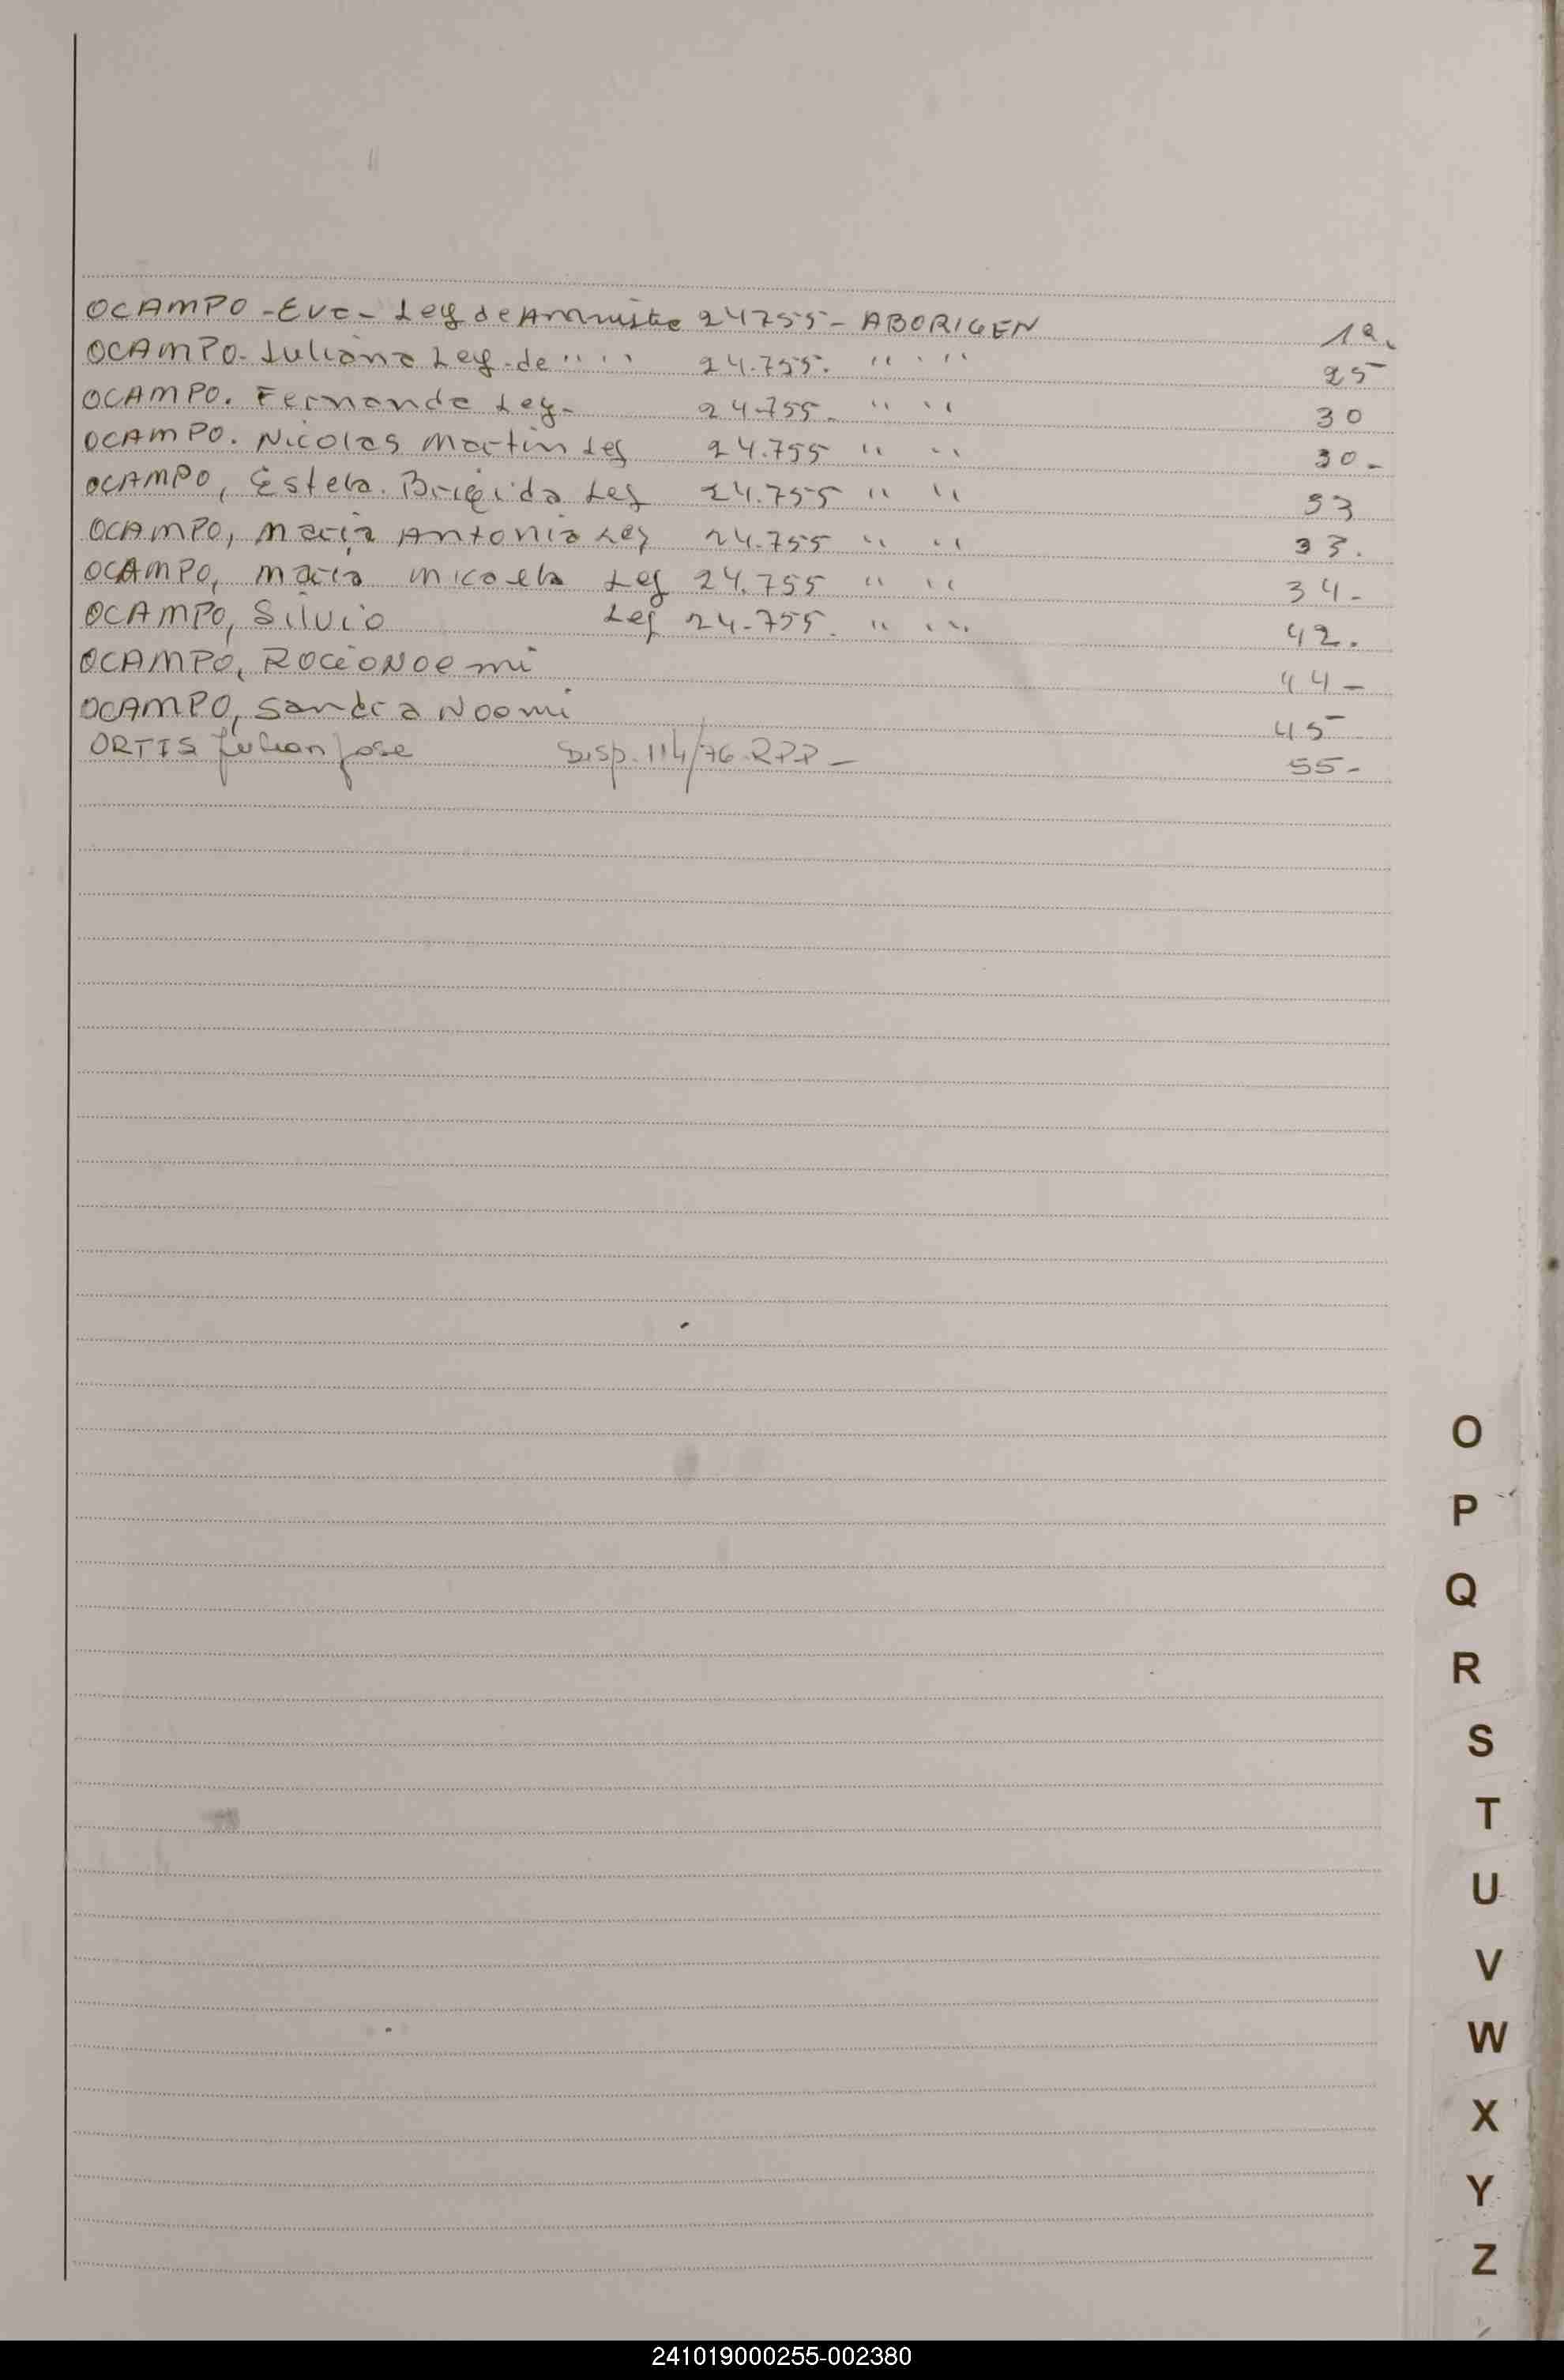 OCAMPO - Eva - Ley de Amnistia 24755 - ABORIGEN 12.
OCAMPO. Juliana Ley. de " " 24.755. " " 25
OCAMPO. Fernanda Ley. 24.755. " " 30
OCAMPO. Nicolas Martin Ley 24.755 " " 30-
OCAMPO, Estela. Brigida Ley 24.755 " " 33
OCAMPO, Maria Antonia Ley 24.755 " " 33.
OCAMPO, Maria Micaela Ley 24.755 " " 34-
OCAMPO, Silvio Ley 24.755. " " 42.
OCAMPO, Rocio Noemi 44-
OCAMPO, Sandra Noemi 45
ORTIS Julian Jose Disp. 114/76 RPP - 55-
O
P
Q
R
S
T
U
V
W
X
Y
Z
241019000255-002380